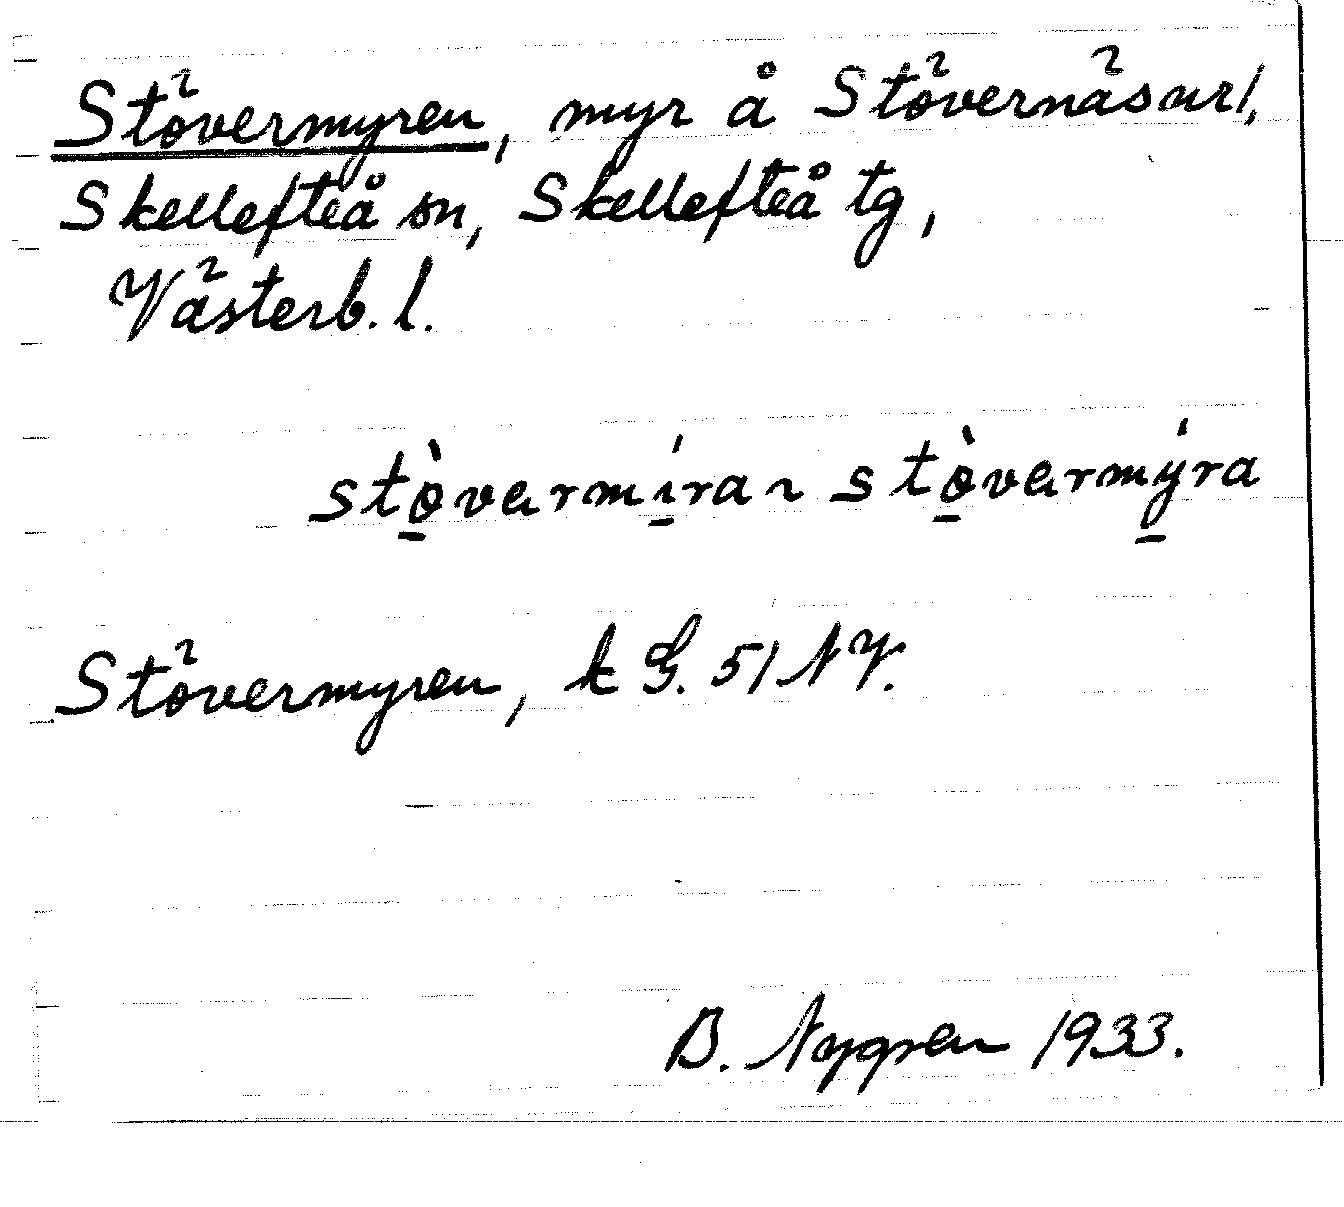 Stövermyren, myr å Stövernäs url,
Skellefteå sn, Skellefteå tg,
Västerb. l.
stø̠̀varmí̠ra ~ stø̠̀varmý̠ra
Stövermyren, k G. 51 NV.
B. Nygren 1933.